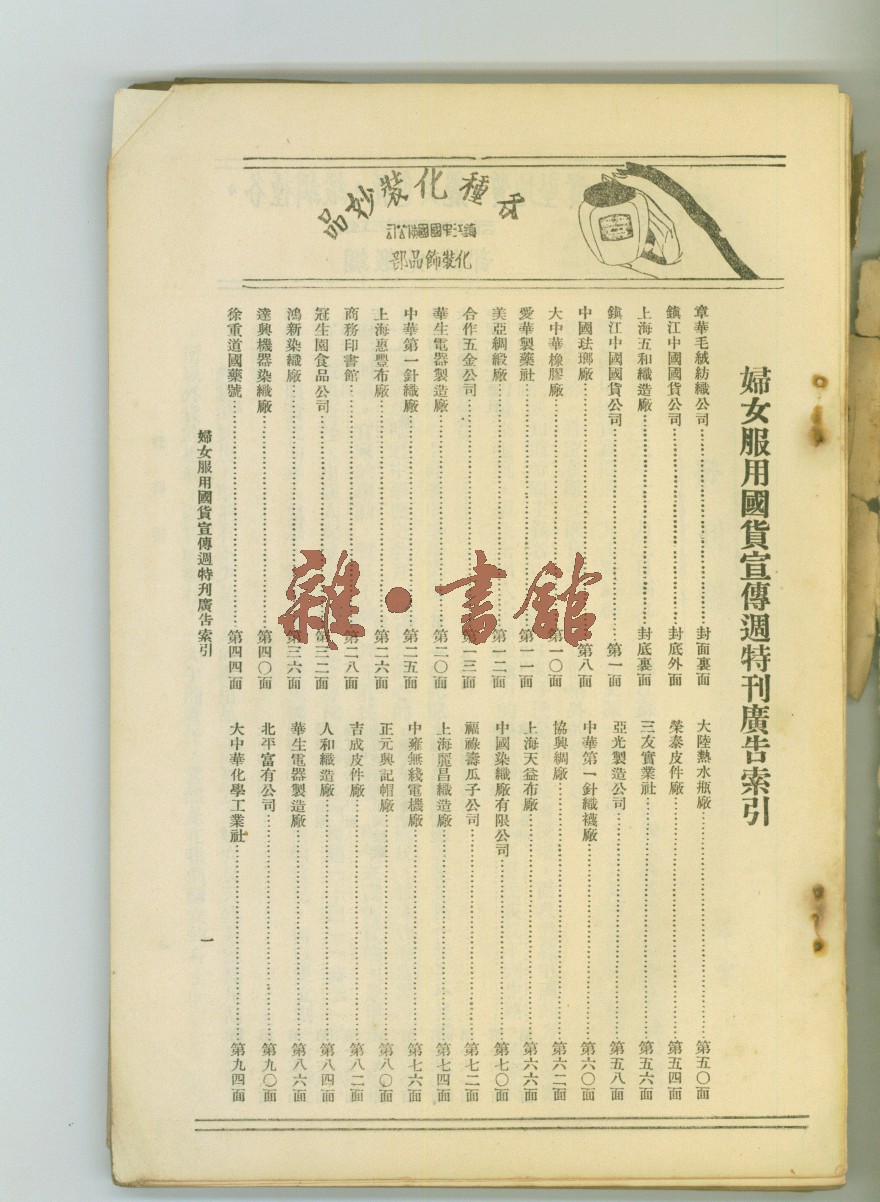 婦女服用國貨宣傳週特刊廣告索引
各種化裝妙品
鎮江中國國貨公司
化裝飾品部
章華毛絨紡織公司 封面裏面
鎮江中國國貨公司 封底外面
上海五和織造廠 封底裏面
鎮江中國國貨公司 第一面
中國珐瑯廠 第八面
大中華橡膠廠 第一〇面
愛華製藥社 第一一面
美亞綢緞廠 第一二面
合作五金公司 第一三面
華生電器製造廠 第二〇面
中華第一針織廠 第二五面
上海惠豐布廠 第二六面
商務印書館 第二八面
冠生園食品公司 第三二面
鴻新染織廠 第三六面
達興機器染織廠 第四〇面
徐重道國藥號 第四四面
大陸熱水瓶廠 第五〇面
榮泰皮件廠 第五四面
三友實業社 第五六面
亞光製造公司 第五八面
中華第一針織襪廠 第六〇面
協興綢廠 第六二面
上海天益布廠 第六六面
中國染織廠有限公司 第七〇面
福祿壽瓜子公司 第七二面
上海麗昌織造廠 第七四面
中雍無綫電機廠 第七六面
正元興記帽廠 第八〇面
吉成皮件廠 第八二面
人和織造廠 第八四面
華生電器製造廠 第八六面
北平富有公司 第九〇面
大中華化學工業社 第九四面
婦女服用國貨宣傳週特刊廣告索引
一
雜·書館